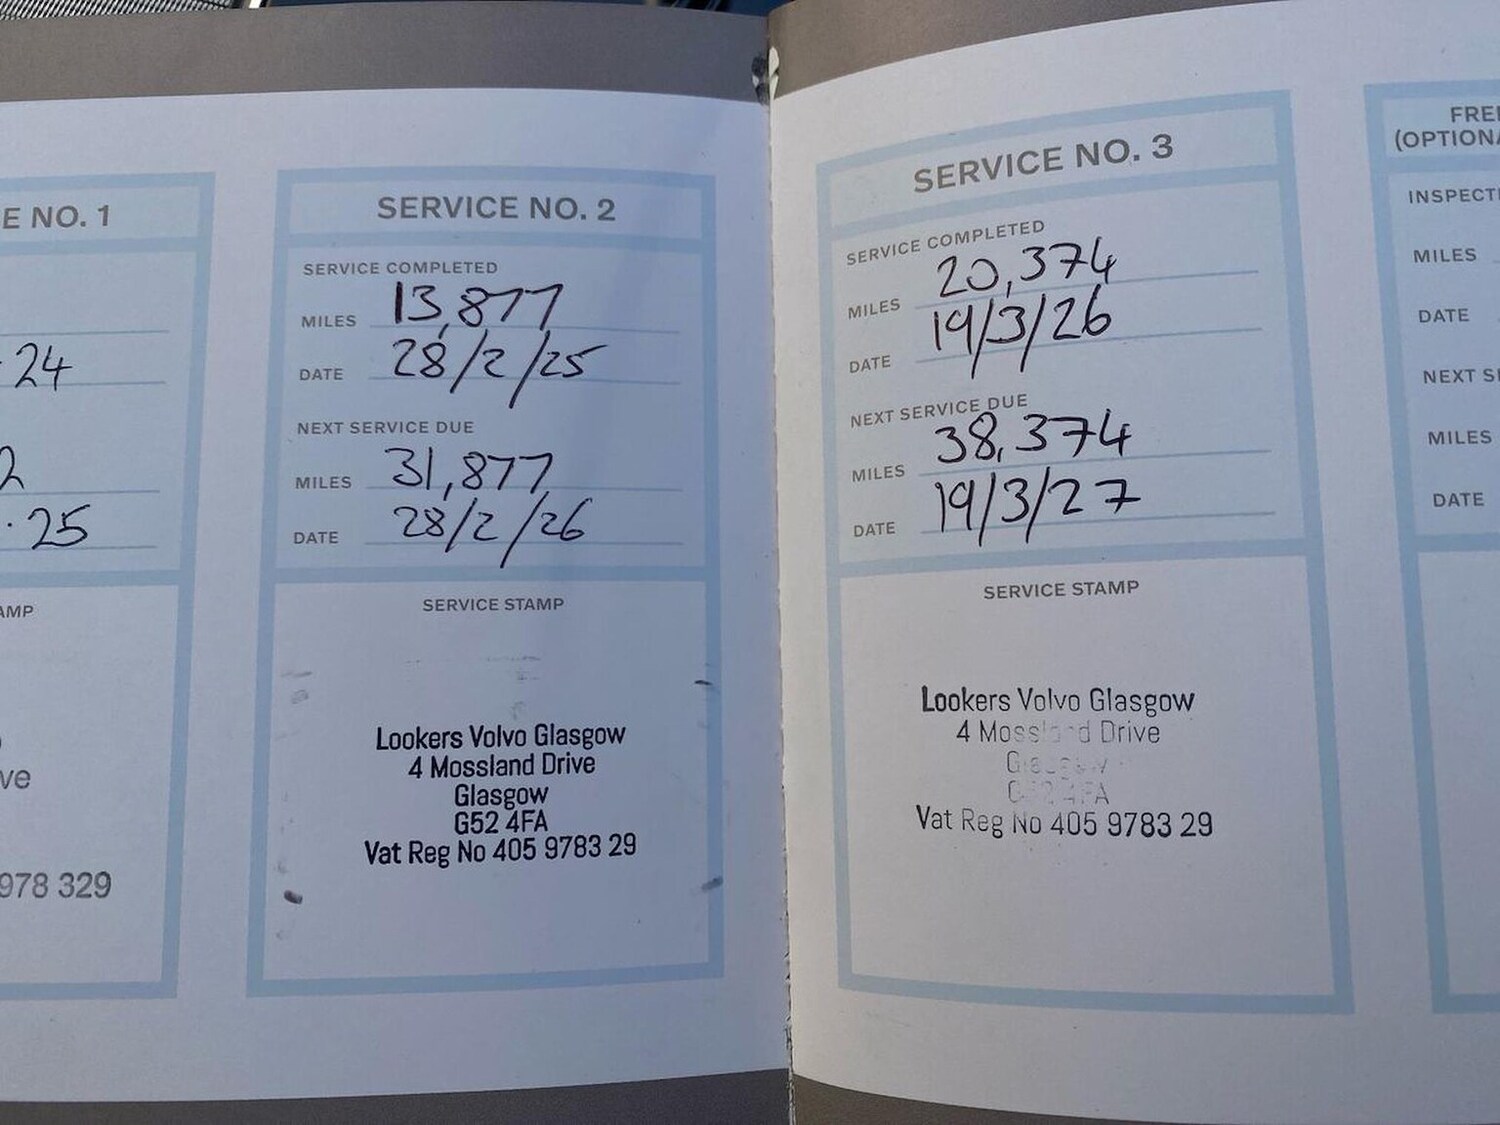 E NO. 1
24
2
. 25
AMP
ve
978 329
SERVICE NO. 2
SERVICE COMPLETED
MILES 13,877
DATE 28/2/25
NEXT SERVICE DUE
MILES 31,877
DATE 28/2/26
SERVICE STAMP
Lookers Volvo Glasgow
4 Mossland Drive
Glasgow
G52 4FA
Vat Reg No 405 9783 29
SERVICE NO. 3
SERVICE COMPLETED
MILES 20,374
DATE 19/3/26
NEXT SERVICE DUE
MILES 38,374
DATE 19/3/27
SERVICE STAMP
Lookers Volvo Glasgow
4 Mossland Drive
Glasgow
G52 4FA
Vat Reg No 405 9783 29
FREE
(OPTIONA
INSPECTI
MILES
DATE
NEXT SE
MILES
DATE